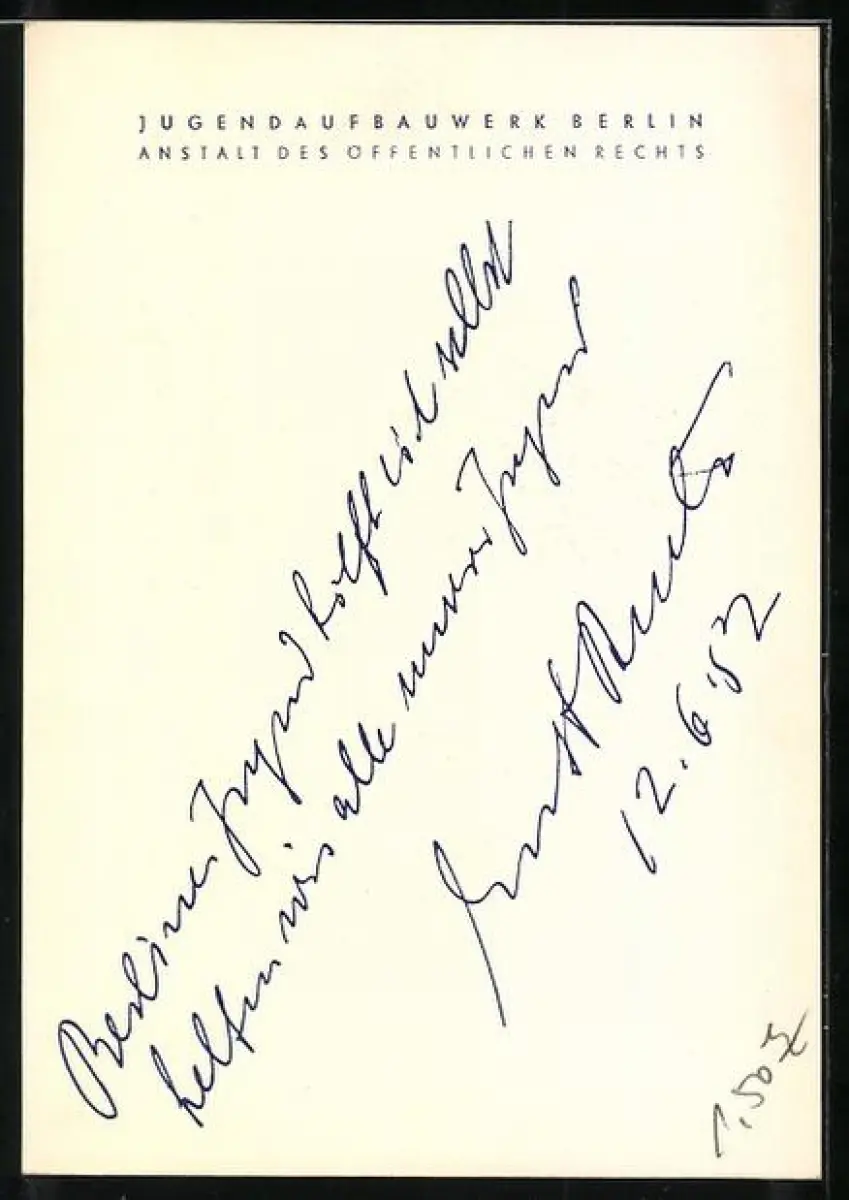 JUGENDAUFBAUWERK BERLIN
ANSTALT DES ÖFFENTLICHEN RECHTS
Berliner Jugend hilft sich selbst
helfen wir alle unserer Jugend
Ernst Reuter
12.6.'52
1,50